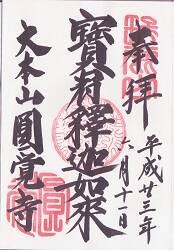 奉拝
平成廿三年
六月十二日
寶冠釋迦如来
大本山圓覚寺